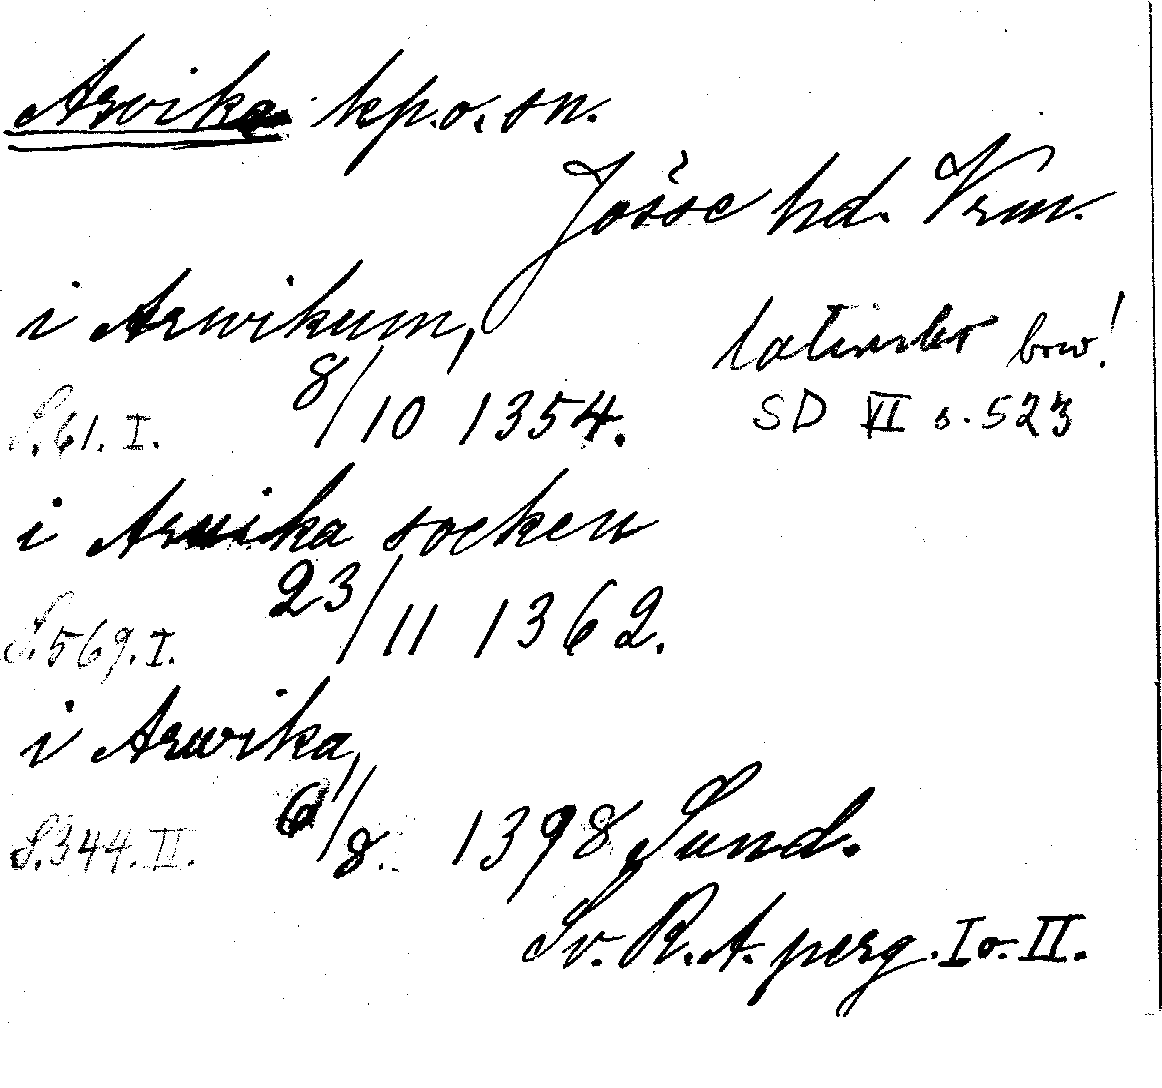 Arvika kp. o. sn.
Jösse hd. Vrm.
i Arwikum,
latinskt brev!
S. 61. I. 8/10 1354.
SD VI s. 523
i Arwika socken
S. 569. I. 23/11 1362.
i Arwika,
S. 344. II. 6/8 1398 Sund.
Sv. R. A. perg. I o. II.